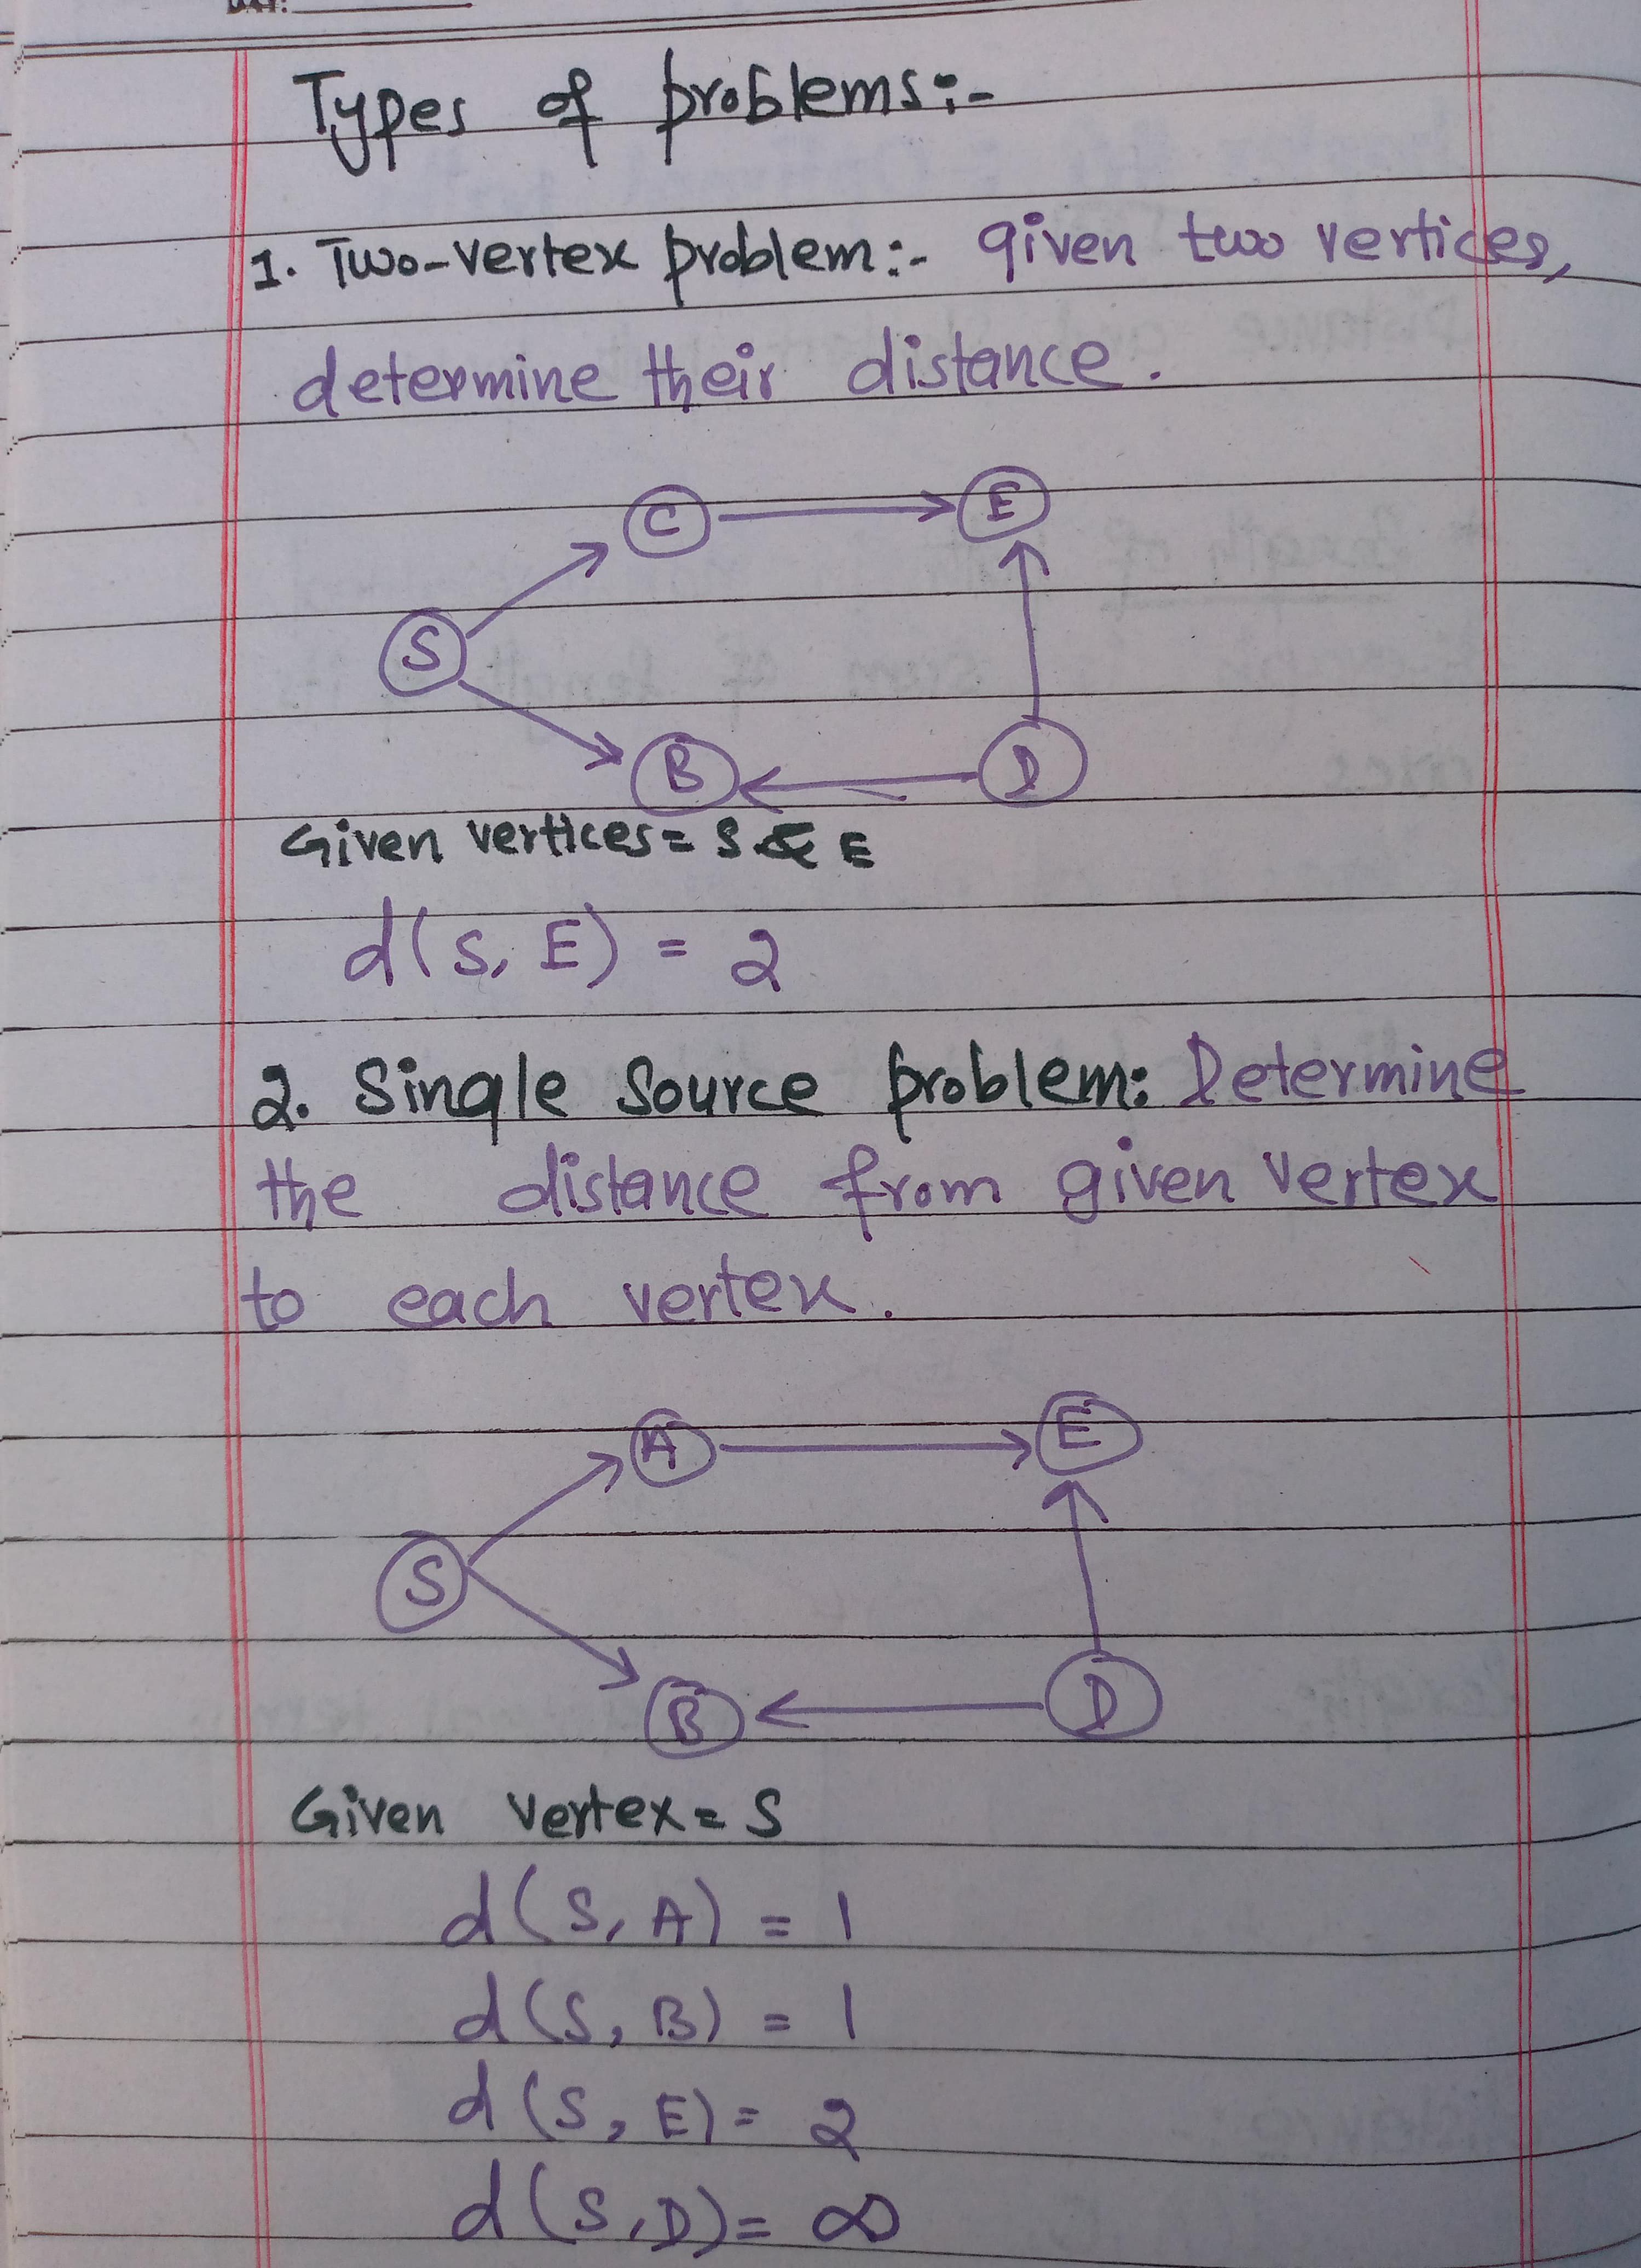 Types of problems:-
1. Two-vertex problem:- given two vertices,
determine their distance.
C E
S
B D
Given vertices = S & E
d(S, E) = 2
2. Single Source problem: Determine
the distance from given vertex
to each vertex.
A E
S
B D
Given vertex = S
d(S, A) = 1
d(S, B) = 1
d(S, E) = 2
d(S, D) = ∞